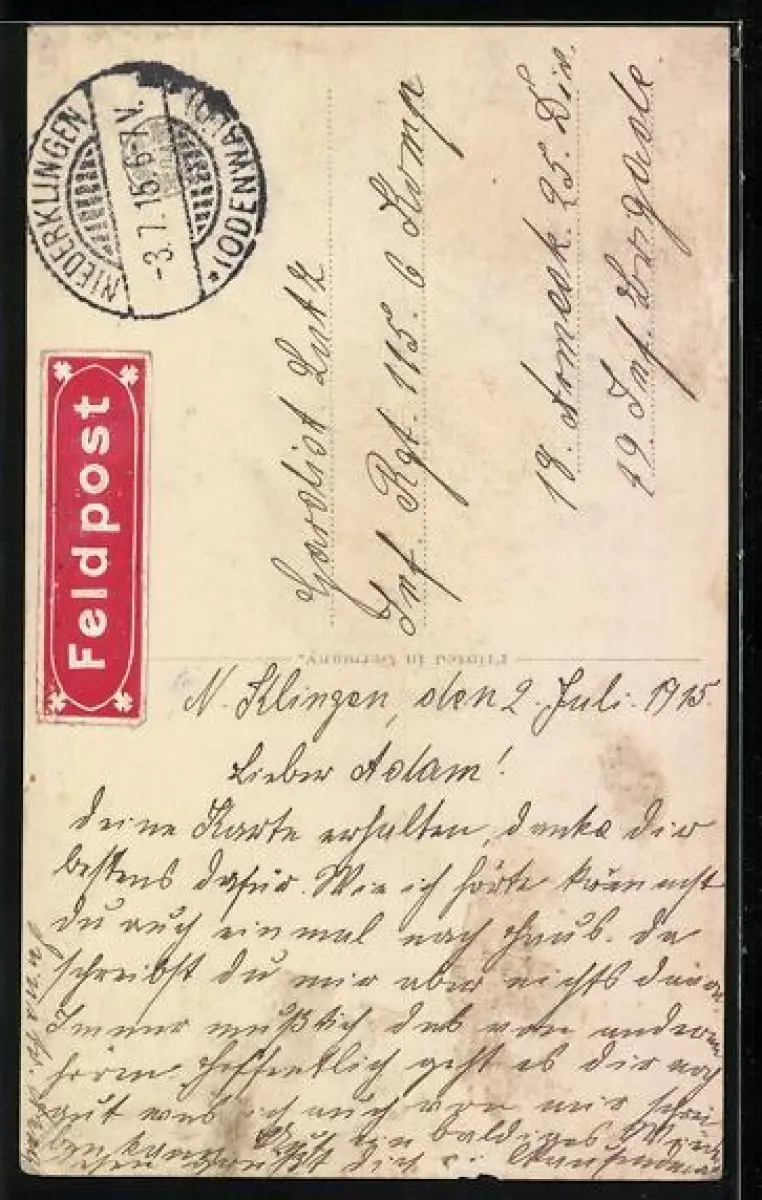 NIEDERKLINGEN
* (ODENWALD)
-3.7.15.6-7V.
Feldpost
Gardist Lutz
Inf. Rgt. 115. 6 Komp
18. Armeek. 25. Div.
49 Inf. Brigade.
Printed in Germany.
N. Klingen, den 2. Juli. 1915.
Lieber Adam!
Deine Karte erhalten, danke dir
bestens dafür. Wie ich hörte kömmst
du auch einmal nach Haus. Da
schreibst du mir aber nichts davon.
Immer muß ich das von anderen
hören. Hoffentlich geht es dir noch
gut was ich auch von mir schrei
ben kann. Auf ein baldiges Wieder
sehen grüßt dich